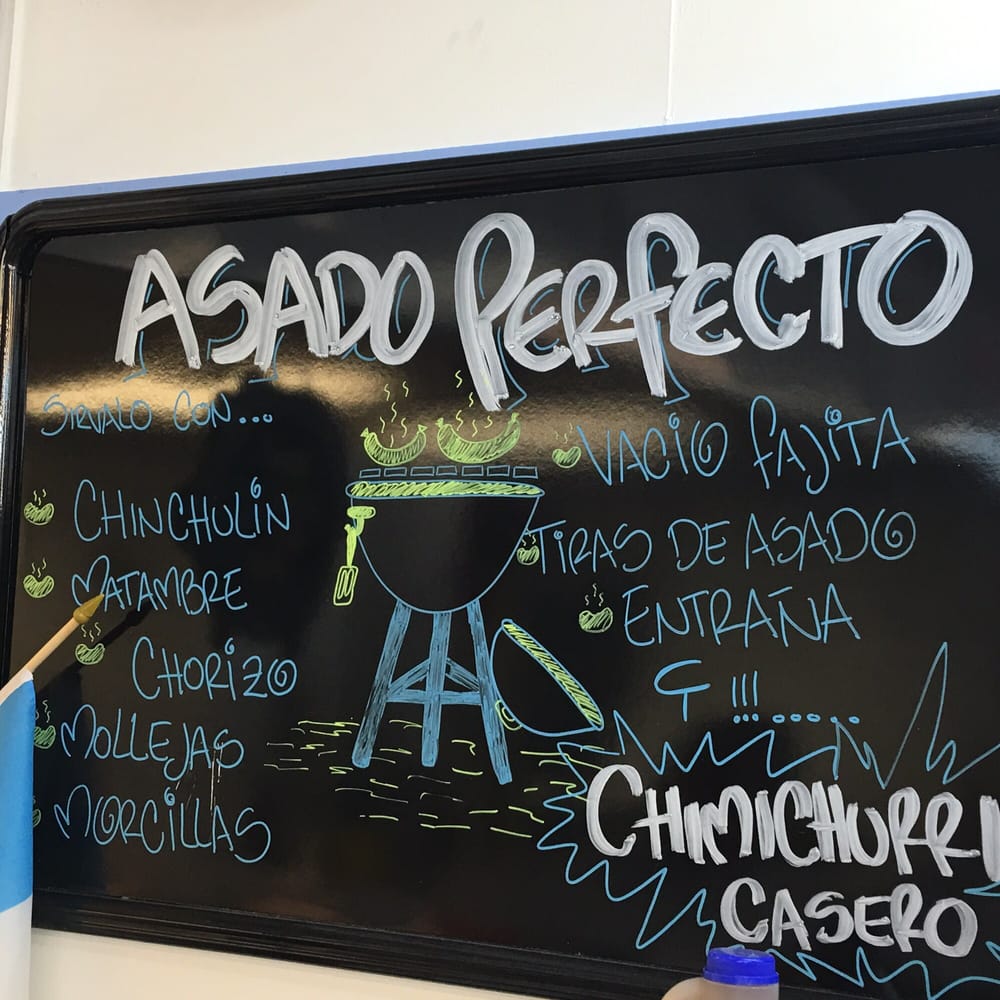 ASADO PERFECTO
SIRVALO CON...
CHINCHULIN
MATAMBRE
CHORIZO
MOLLEJAS
MORCILLAS
VACIO FAJITA
TIRAS DE ASADO
ENTRAÑA
Y !!! .....
CHIMICHURRI
CASERO